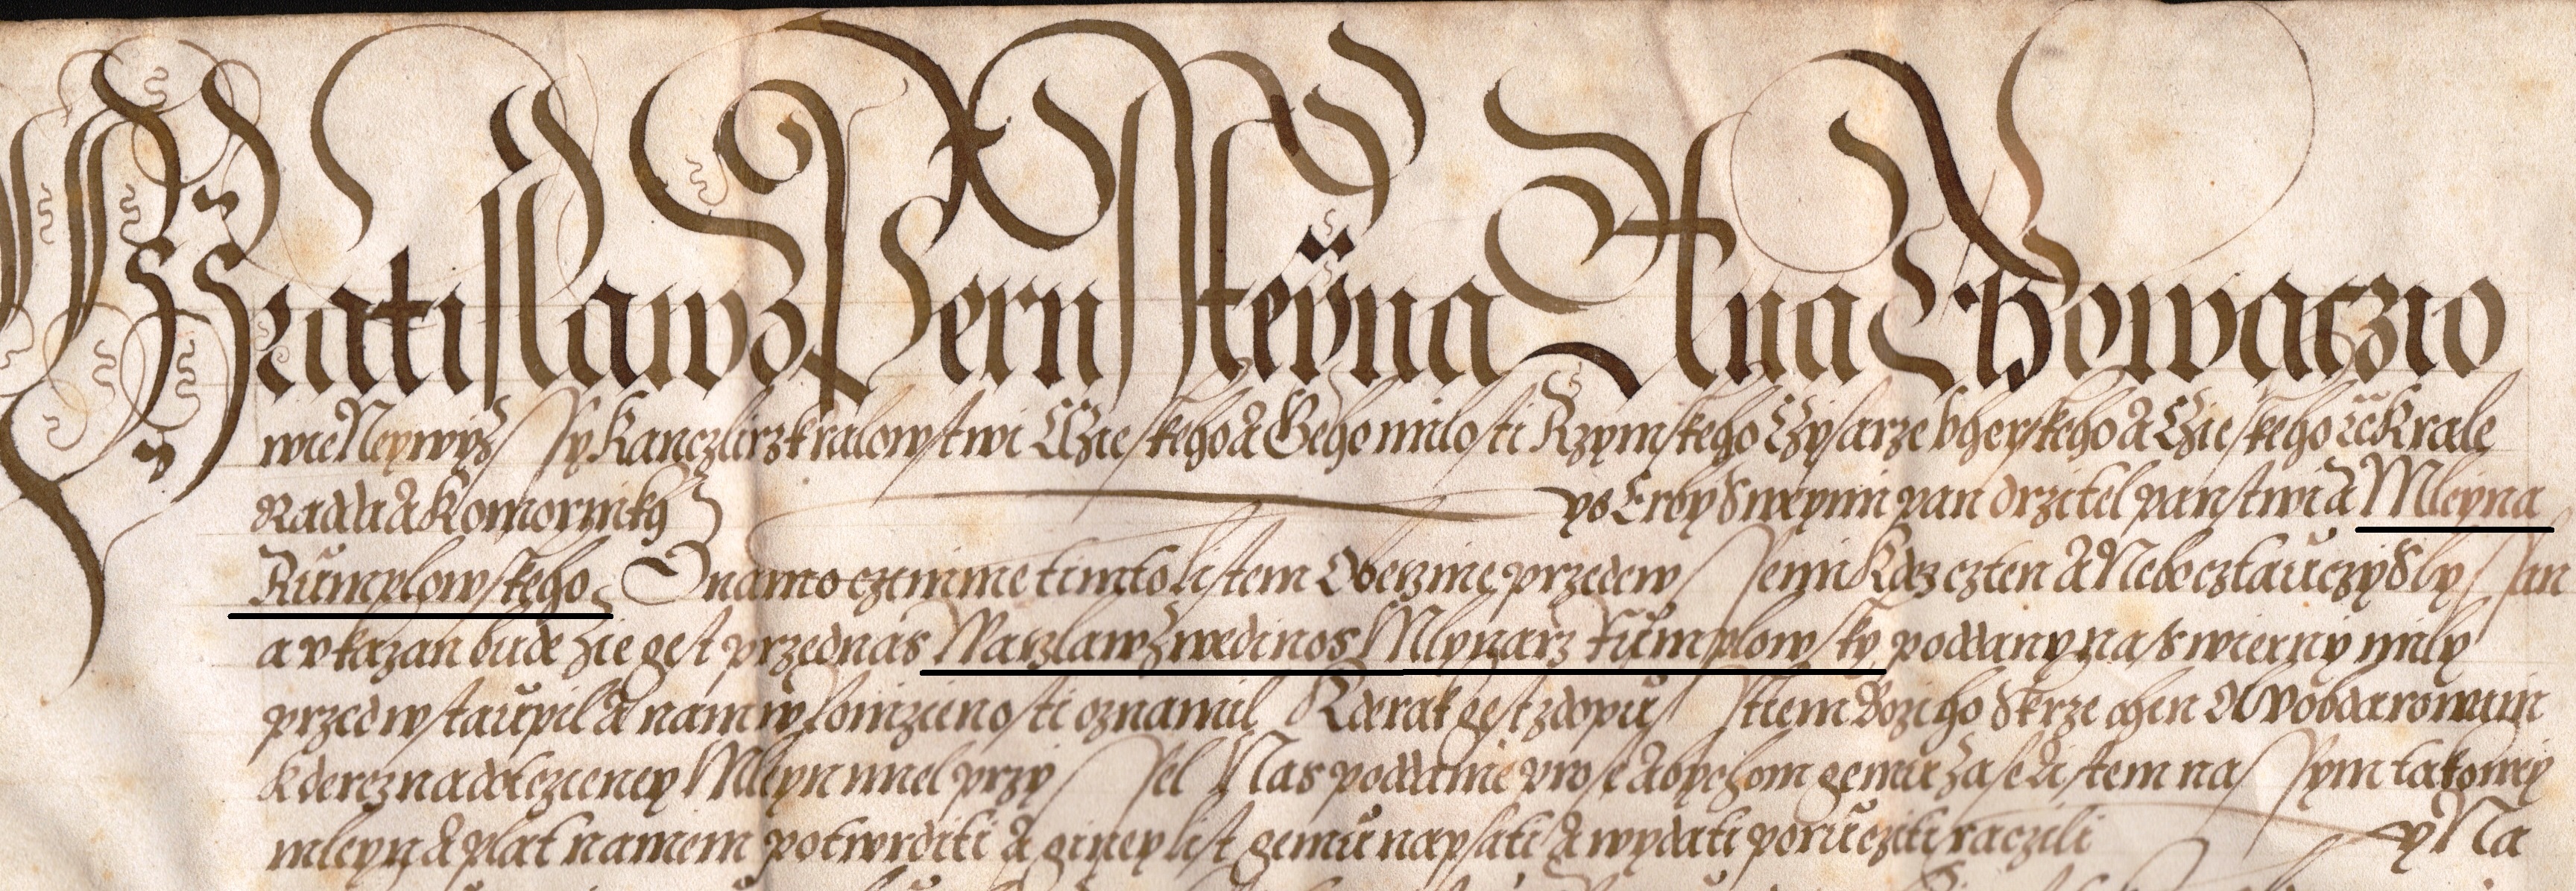 Wratislaw z Pernsteyna A na Towaczio
wie Neywyzssy Kanczlirz kralowstwi Cžieskeho a Geho milosti Rzymskeho Czysarze Vherskeho a Czieskeho ec Krale
Radda a Komornik
pan drzitel panstwi a Mleyna
Rumplowskeho Oznamo czinime timto listem Obeczine przedewssemi Kdez czten a Nebo cztauczy slyssan
a vkazan bude žie gest przed nas Waczlaw Mlynarz Rumplowsky poddany nass wierny mily
przedwstaupil a nam w oznamil Kderak gest z dopusstiem Božiho skrze ohen
kderez na dotczieney Mleyn mel przyssel Nas poddanie prose abychom gemu zase listem nassym takowey
mleyn a plat namem potwrditi a giney list gemu napsati a wydati porucziti raczili
y Na